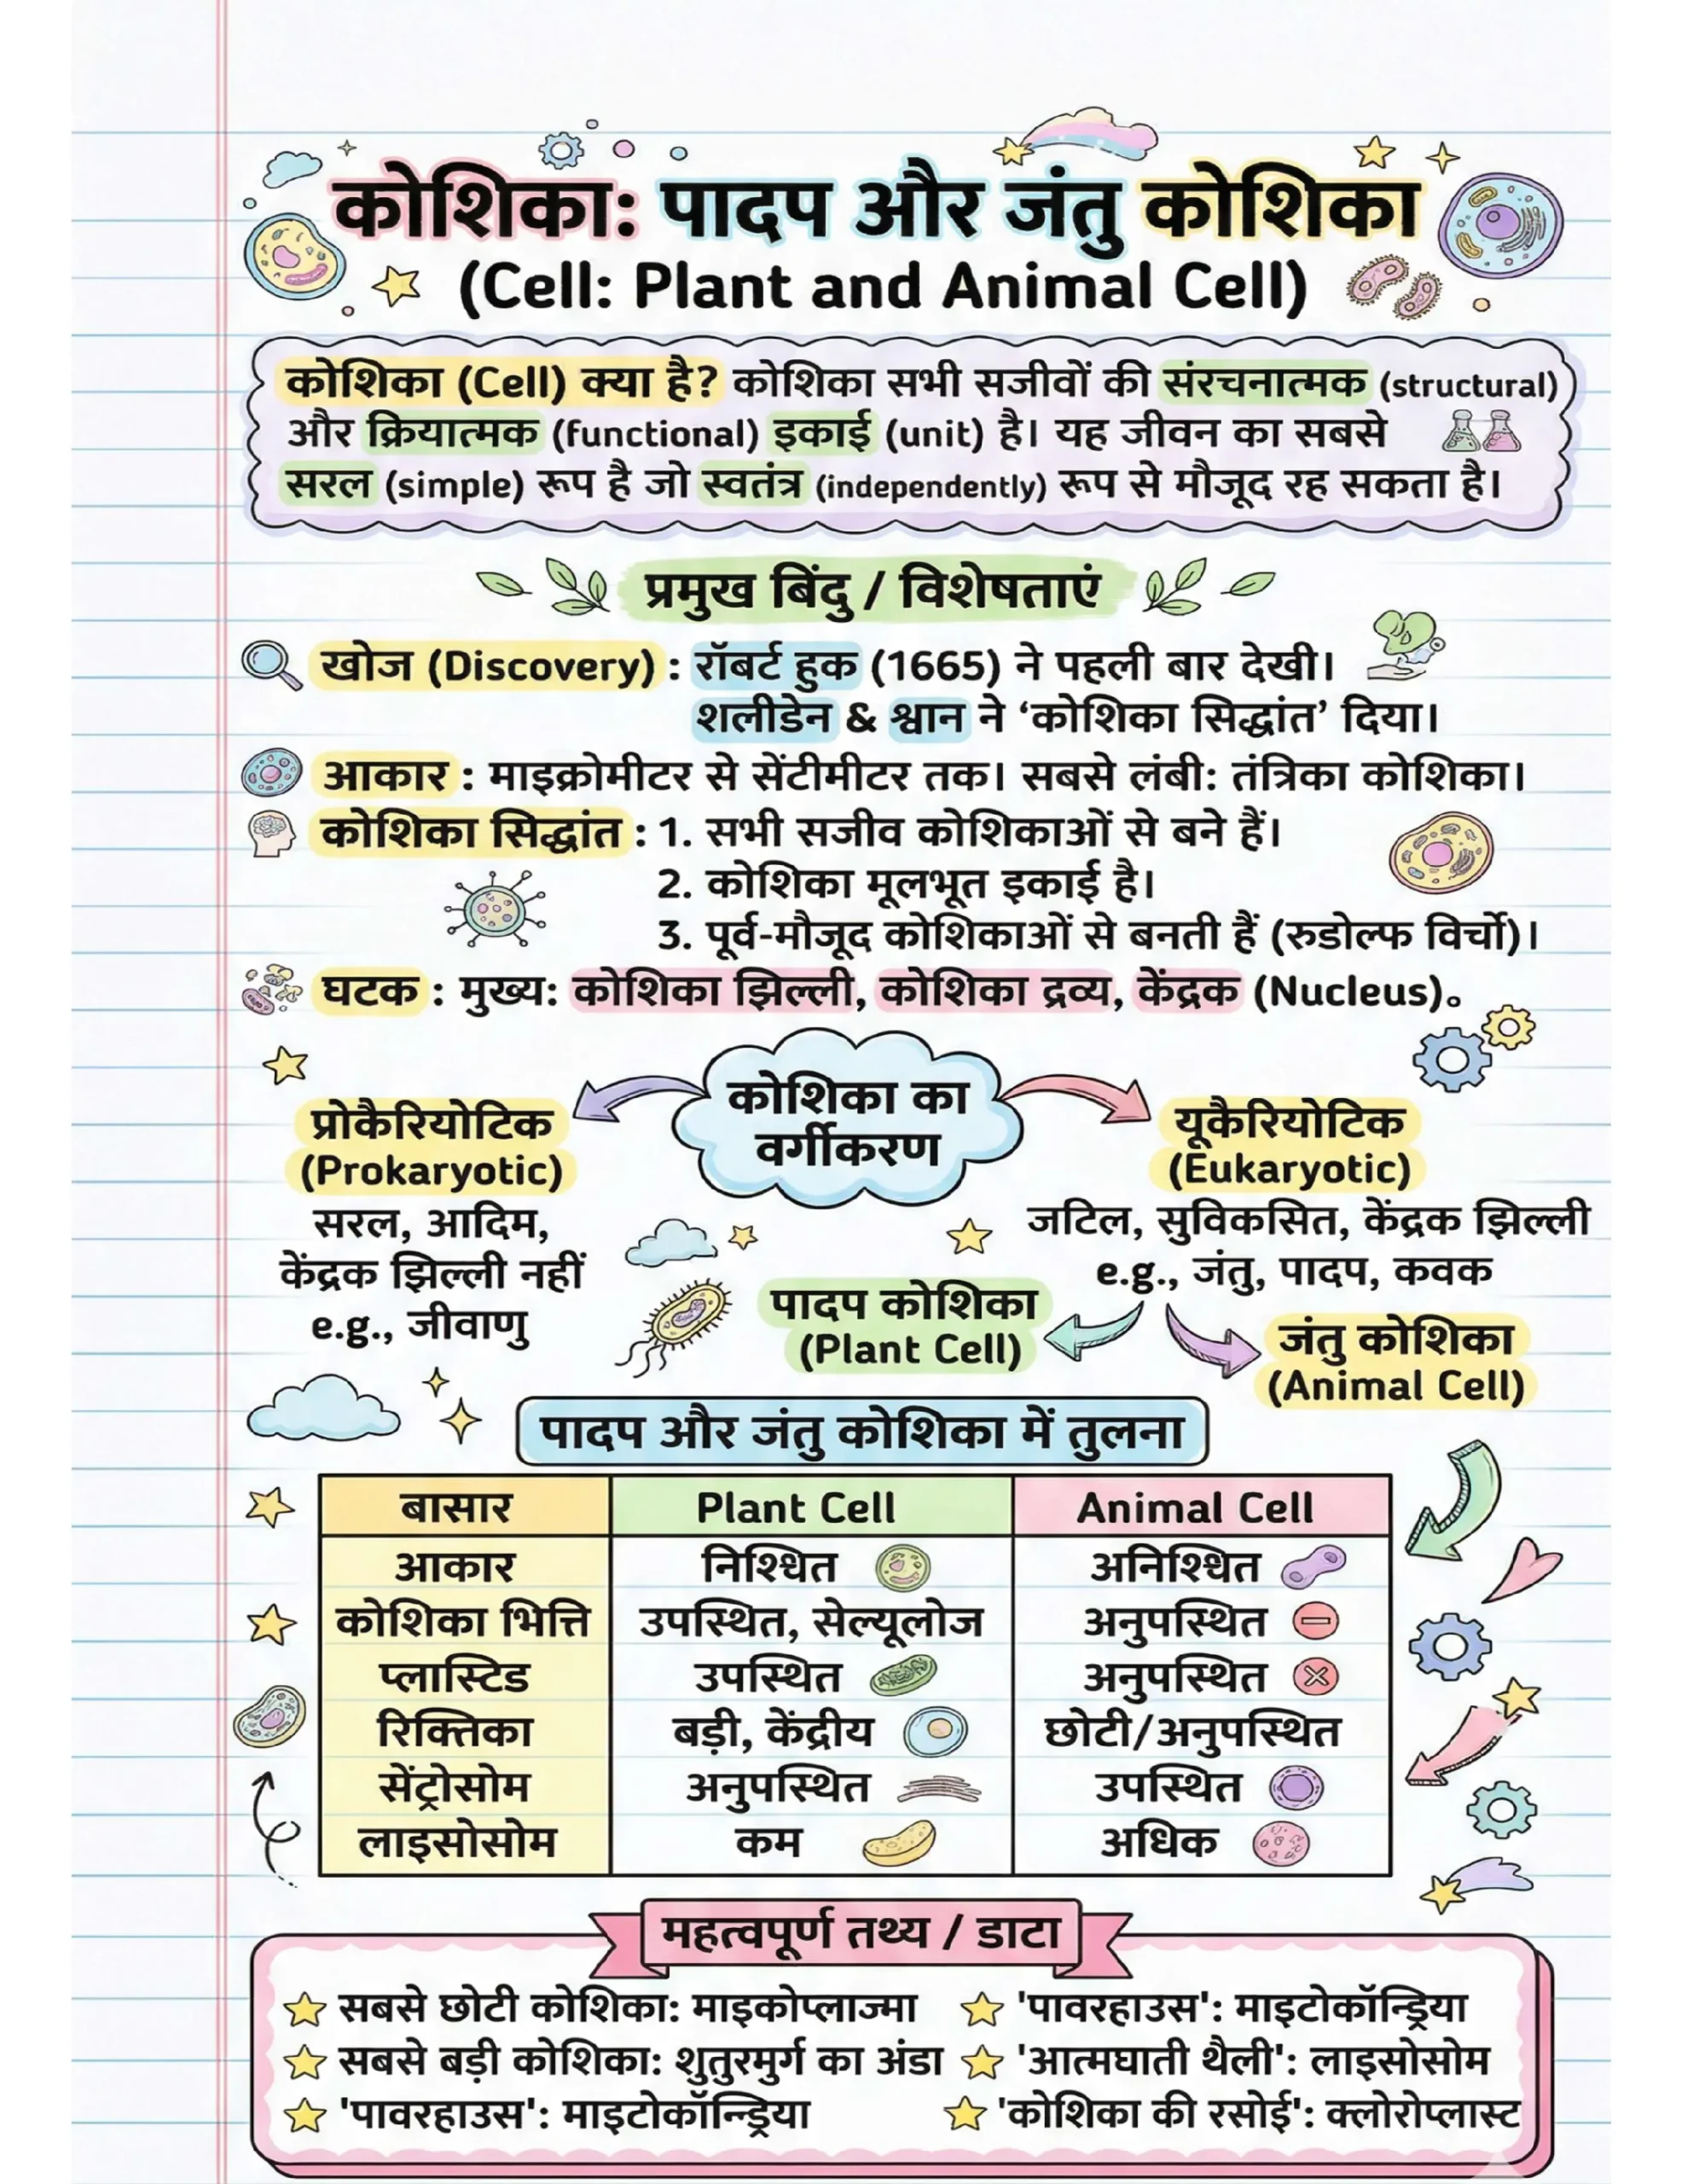 कोशिका: पादप और जंतु कोशिका
(Cell: Plant and Animal Cell)
कोशिका (Cell) क्या है? कोशिका सभी सजीवों की संरचनात्मक (structural)
और क्रियात्मक (functional) इकाई (unit) है। यह जीवन का सबसे
सरल (simple) रूप है जो स्वतंत्र (independently) रूप से मौजूद रह सकता है।
प्रमुख बिंदु / विशेषताएं
खोज (Discovery) : रॉबर्ट हुक (1665) ने पहली बार देखी।
शलीडेन & श्वान ने ‘कोशिका सिद्धांत’ दिया।
आकार : माइक्रोमीटर से सेंटीमीटर तक। सबसे लंबी: तंत्रिका कोशिका।
कोशिका सिद्धांत : 1. सभी सजीव कोशिकाओं से बने हैं।
2. कोशिका मूलभूत इकाई है।
3. पूर्व-मौजूद कोशिकाओं से बनती हैं (रुडोल्फ विर्चो)।
घटक : मुख्य: कोशिका झिल्ली, कोशिका द्रव्य, केंद्रक (Nucleus)。
कोशिका का
वर्गीकरण
प्रोकैरियोटिक
(Prokaryotic)
सरल, आदिम,
केंद्रक झिल्ली नहीं
e.g., जीवाणु
यूकैरियोटिक
(Eukaryotic)
जटिल, सुविकसित, केंद्रक झिल्ली
e.g., जंतु, पादप, कवक
पादप कोशिका
(Plant Cell)
जंतु कोशिका
(Animal Cell)
पादप और जंतु कोशिका में तुलना
बासार Plant Cell Animal Cell
आकार निश्चित अनिश्चित
कोशिका भित्ति उपस्थित, सेल्यूलोज अनुपस्थित
प्लास्टिड उपस्थित अनुपस्थित
रिक्तिका बड़ी, केंद्रीय छोटी/अनुपस्थित
सेंट्रोसोम अनुपस्थित उपस्थित
लाइसोसोम कम अधिक
महत्वपूर्ण तथ्य / डाटा
सबसे छोटी कोशिका: माइकोप्लाज्मा 'पावरहाउस': माइटोकॉन्ड्रिया
सबसे बड़ी कोशिका: शुतुरमुर्ग का अंडा 'आत्मघाती थैली': लाइसोसोम
'पावरहाउस': माइटोकॉन्ड्रिया 'कोशिका की रसोई': क्लोरोप्लास्ट